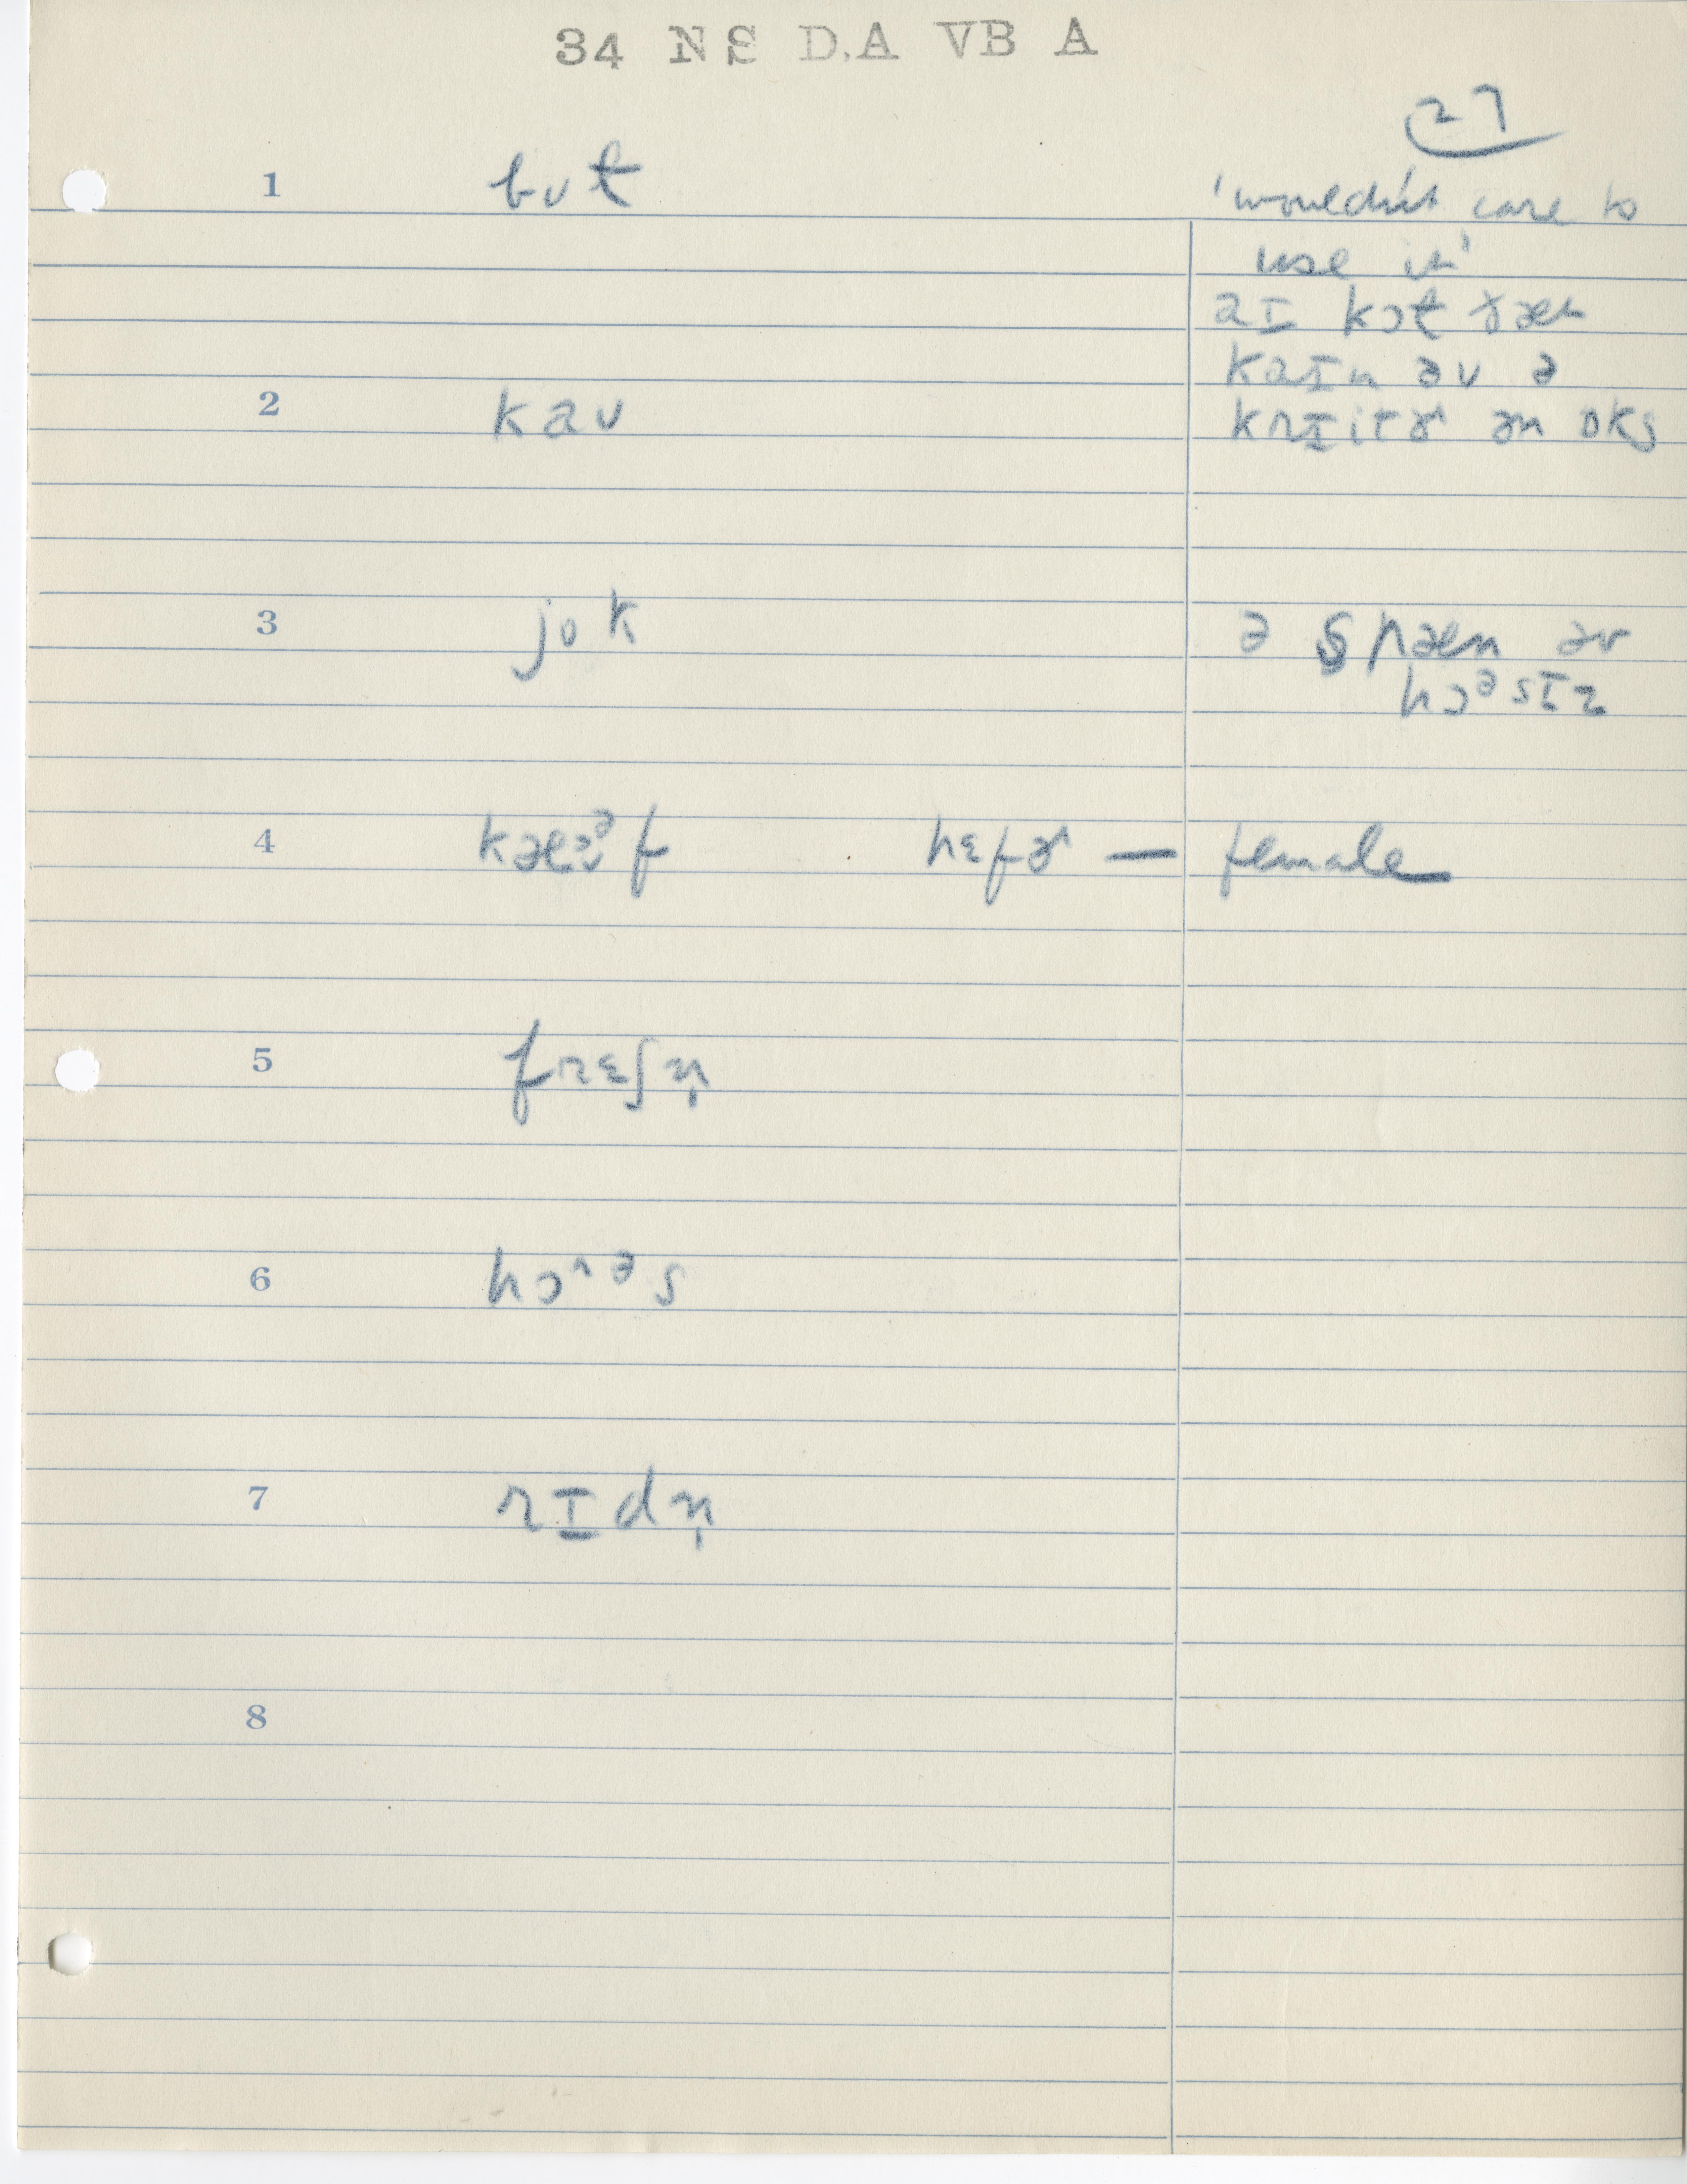 34 NS D.A VB A
27
1 bʊt 'wouldn't care to
use it'
aɪ kɔt ðæt
kaɪn əv ə
2 kaʊ krɪitɚ ən ɒks
3 jok ə spæn əv
hɔᵊsɪz
4 kæʊᵊf hɛfɚ — female
5 frɛʃn̩
6 hɔ^əs
7 rɪdn̩
8